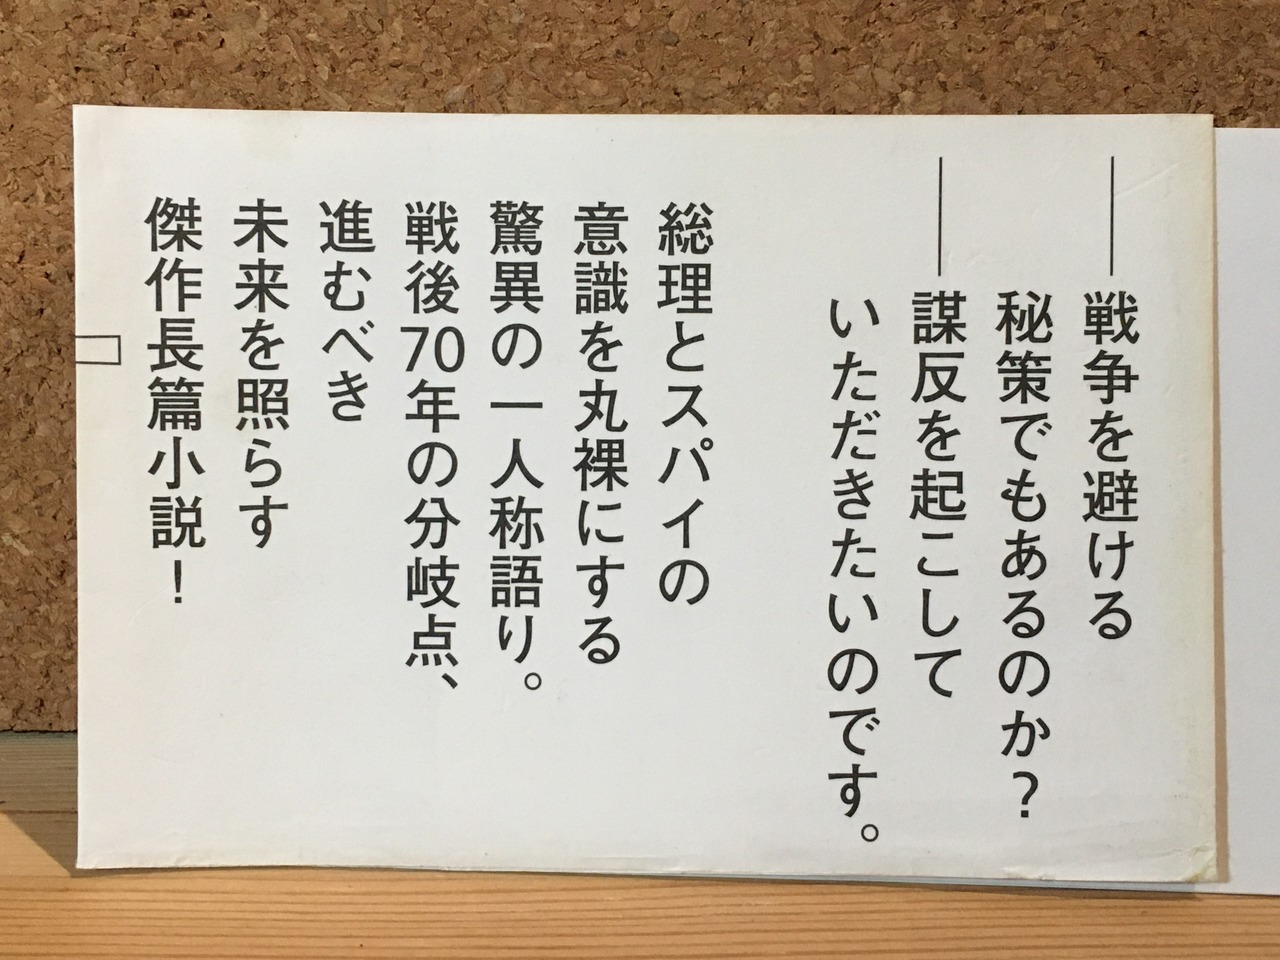 ――戦争を避ける
秘策でもあるのか？
――謀反を起こして
いただきたいのです。
総理とスパイの
意識を丸裸にする
驚異の一人称語り。
戦後70年の分岐点、
進むべき
未来を照らす
傑作長篇小説！